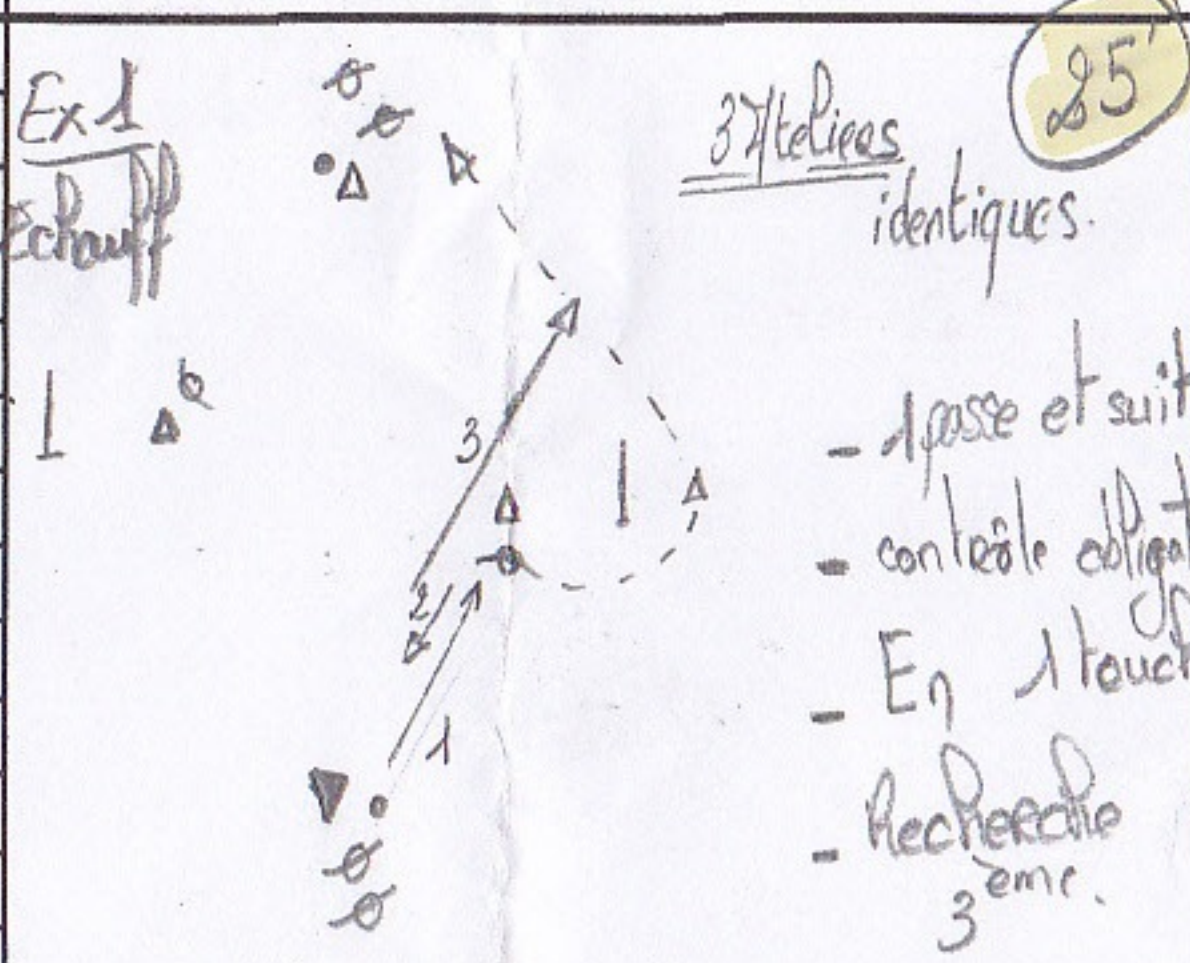 Ex 1
Echauff
3 Ateliers
identiques.
25'
- 1 passe et suit
- contrôle obligat
- En 1 touch
- Recherche
3 ème.
3
2
1